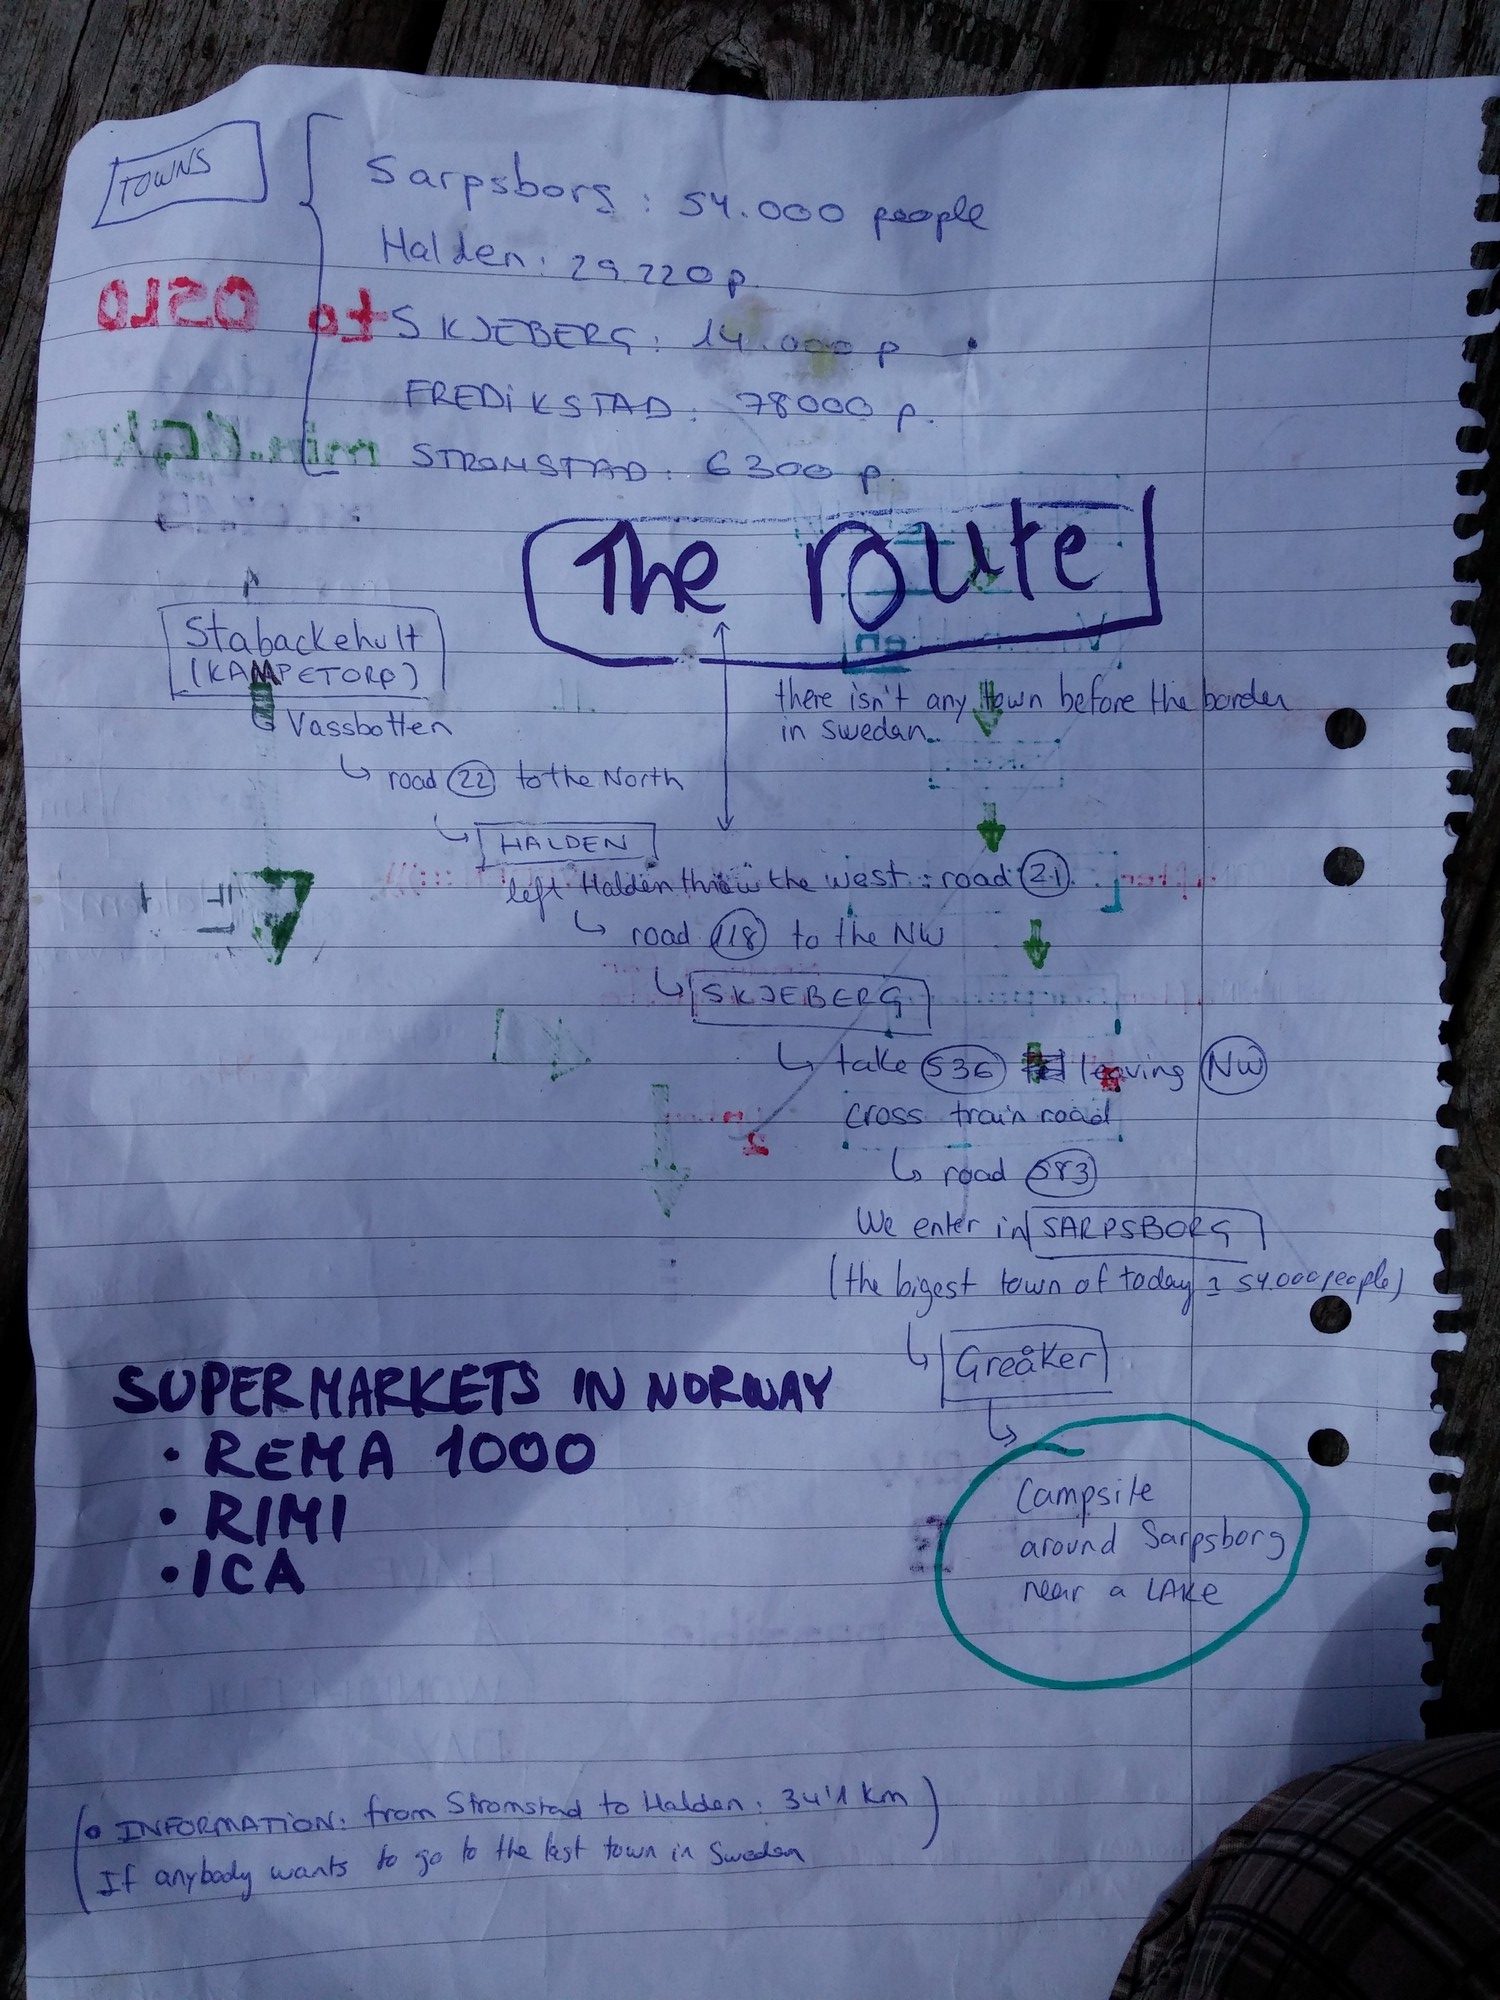 TOWNS
Sarpsborg : 54.000 people
Halden : 29220 p.
SKJEBERG : 14.000 p
FREDIKSTAD : 78000 p.
STROMSTAD : 6300 p.
to OSLO
The route
Stabackehult
(KAMPETORP)
Vassbotten
there isn't any town before the border
in Swedan
road 22 to the North
HALDEN
left Halden threw the west : road 21
road 118 to the NW
SKJEBERG
take 536 leaving NW
cross train road
road 583
We enter in SARPSBORG
(the bigest town of today : 54.000 people)
Greåker
Campsite
around Sarpsborg
near a LAKE
SUPERMARKETS IN NORWAY
• REMA 1000
• RIMI
• ICA
(• INFORMATION: from Stromstad to Halden : 34'1 km)
If anybody wants to go to the last town in Sweden